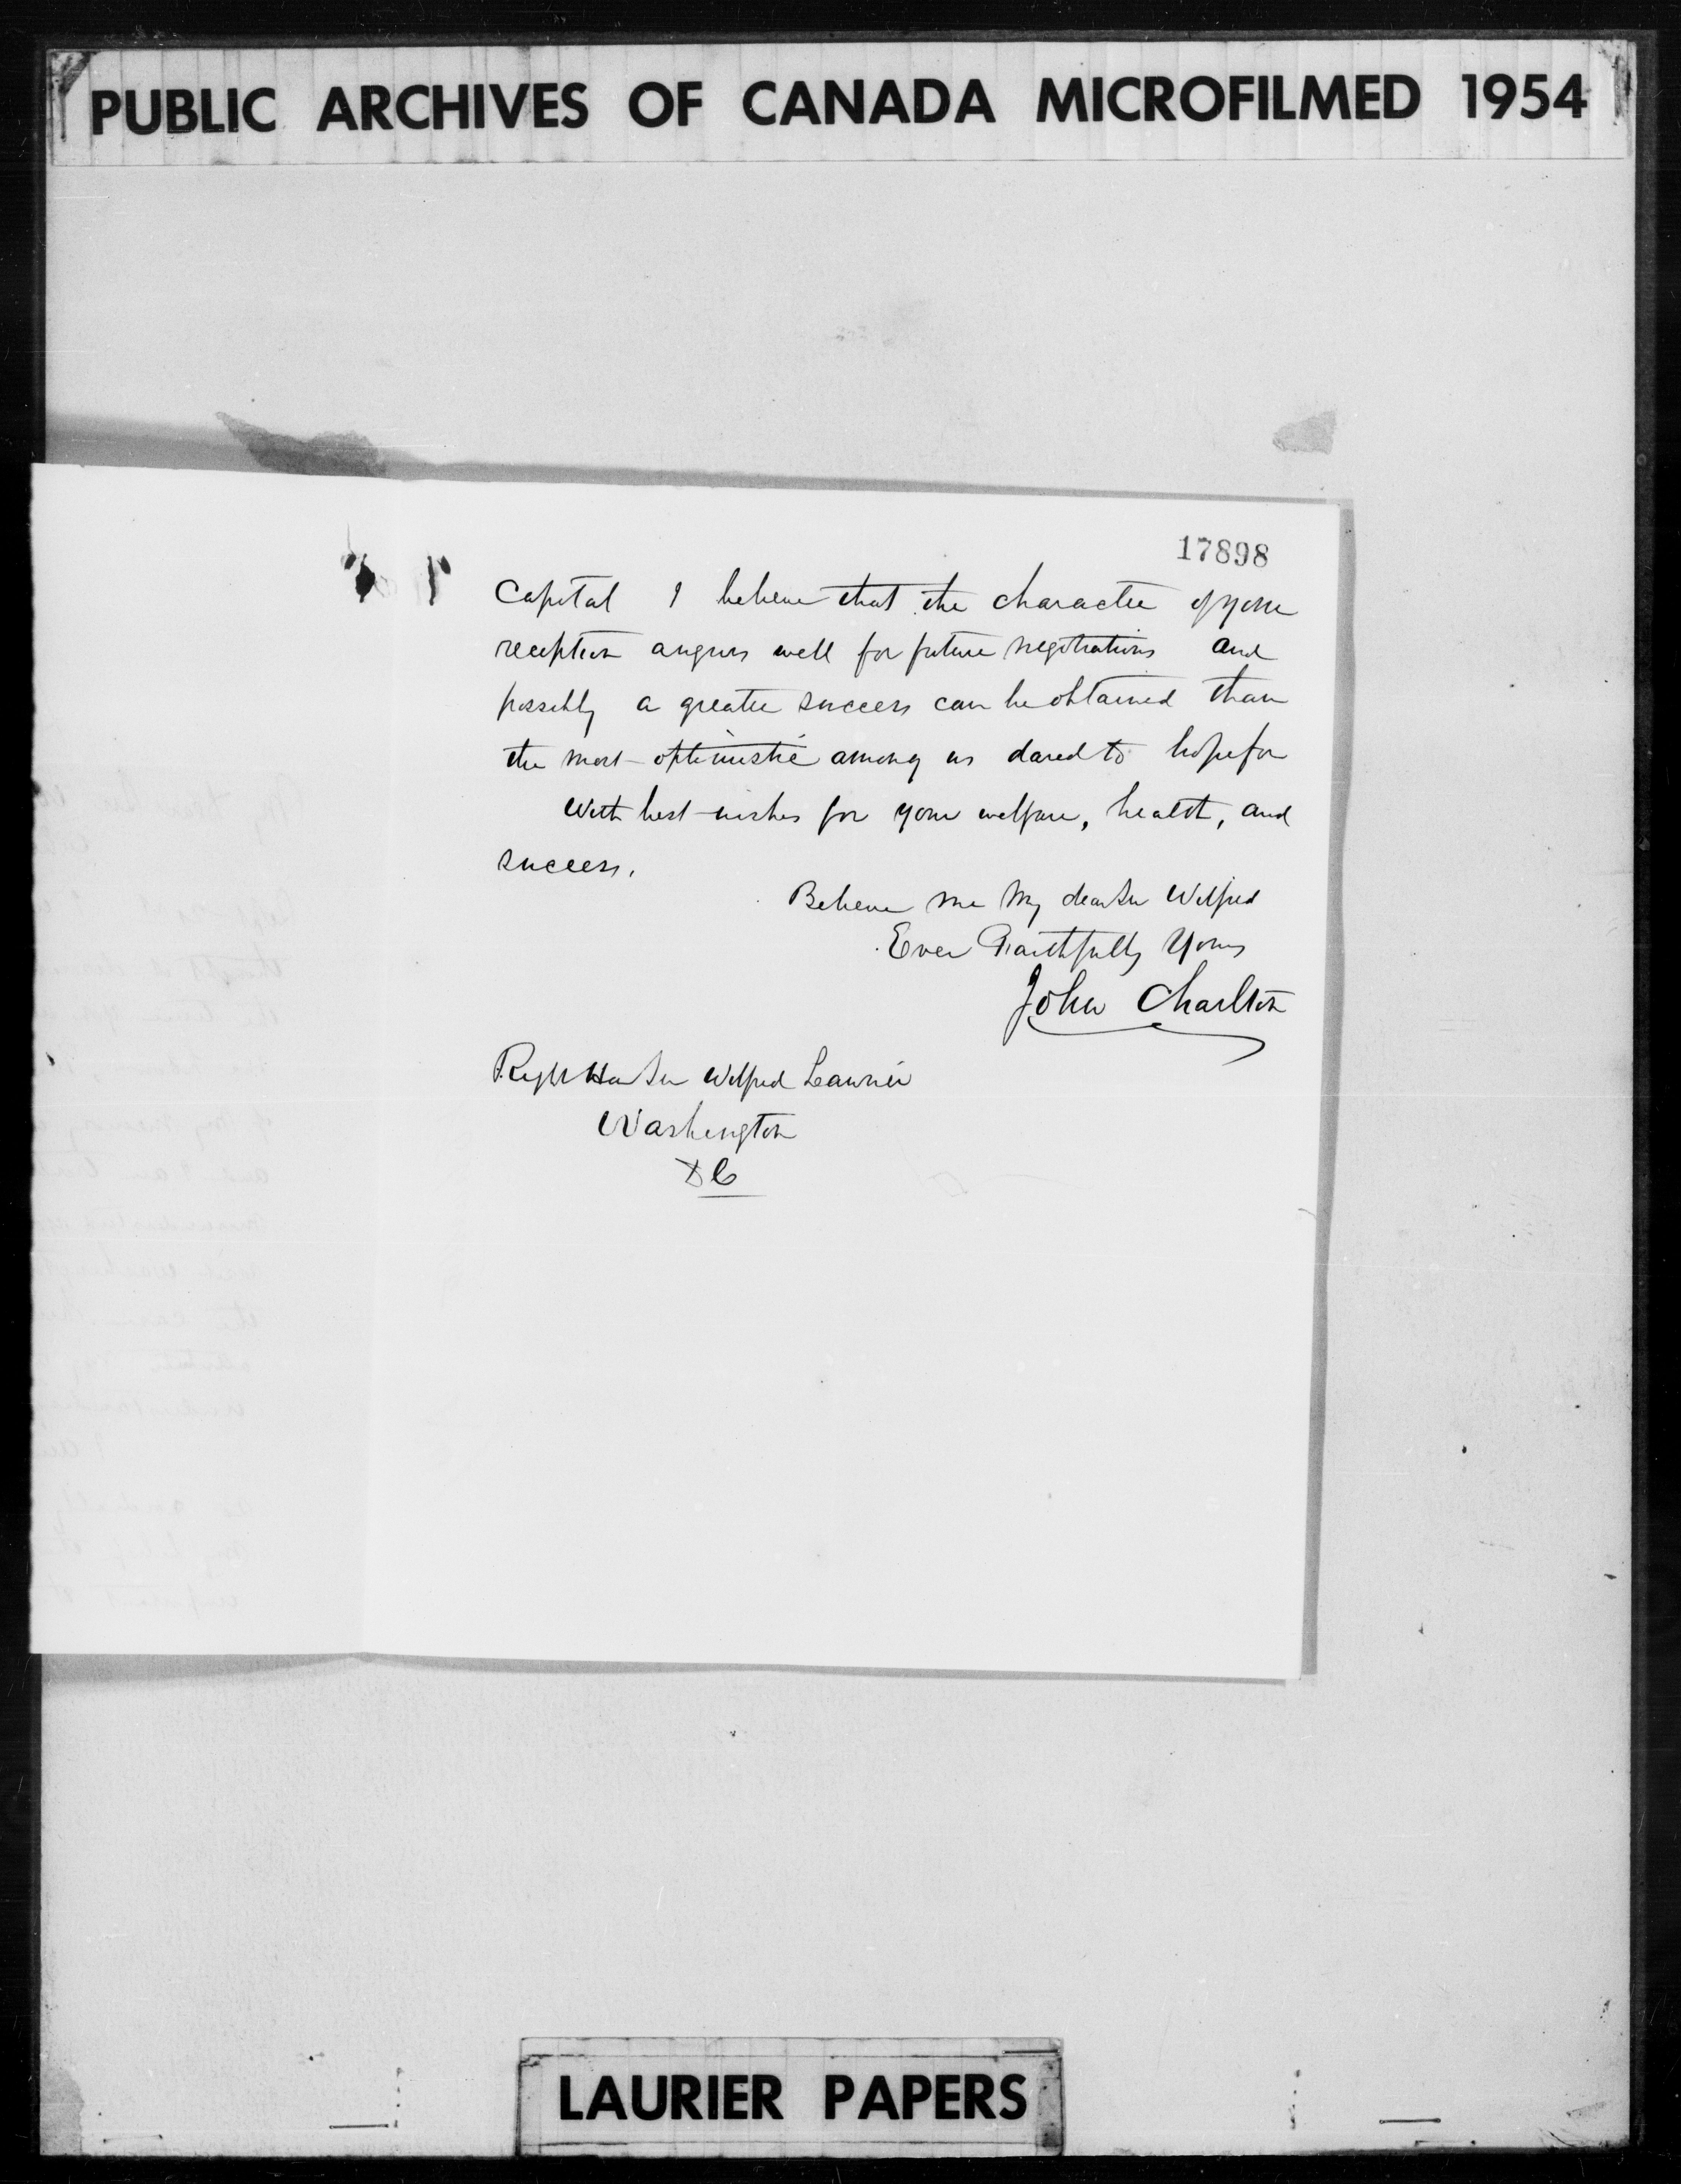 PUBLIC ARCHIVES OF CANADA MICROFILMED 1954
17898
Capital I believe that the character of your
reception augurs well for future negotiations and
possibly a greater success can be obtained than
the most optimistic among us dared to hope for
With best wishes for your welfare, health, and
success.
Believe me My dear Sir Wilfred
Ever Faithfully Yours
John Charlton
Right Hon Sir Wilfred Laurier
Washington
DC
LAURIER PAPERS